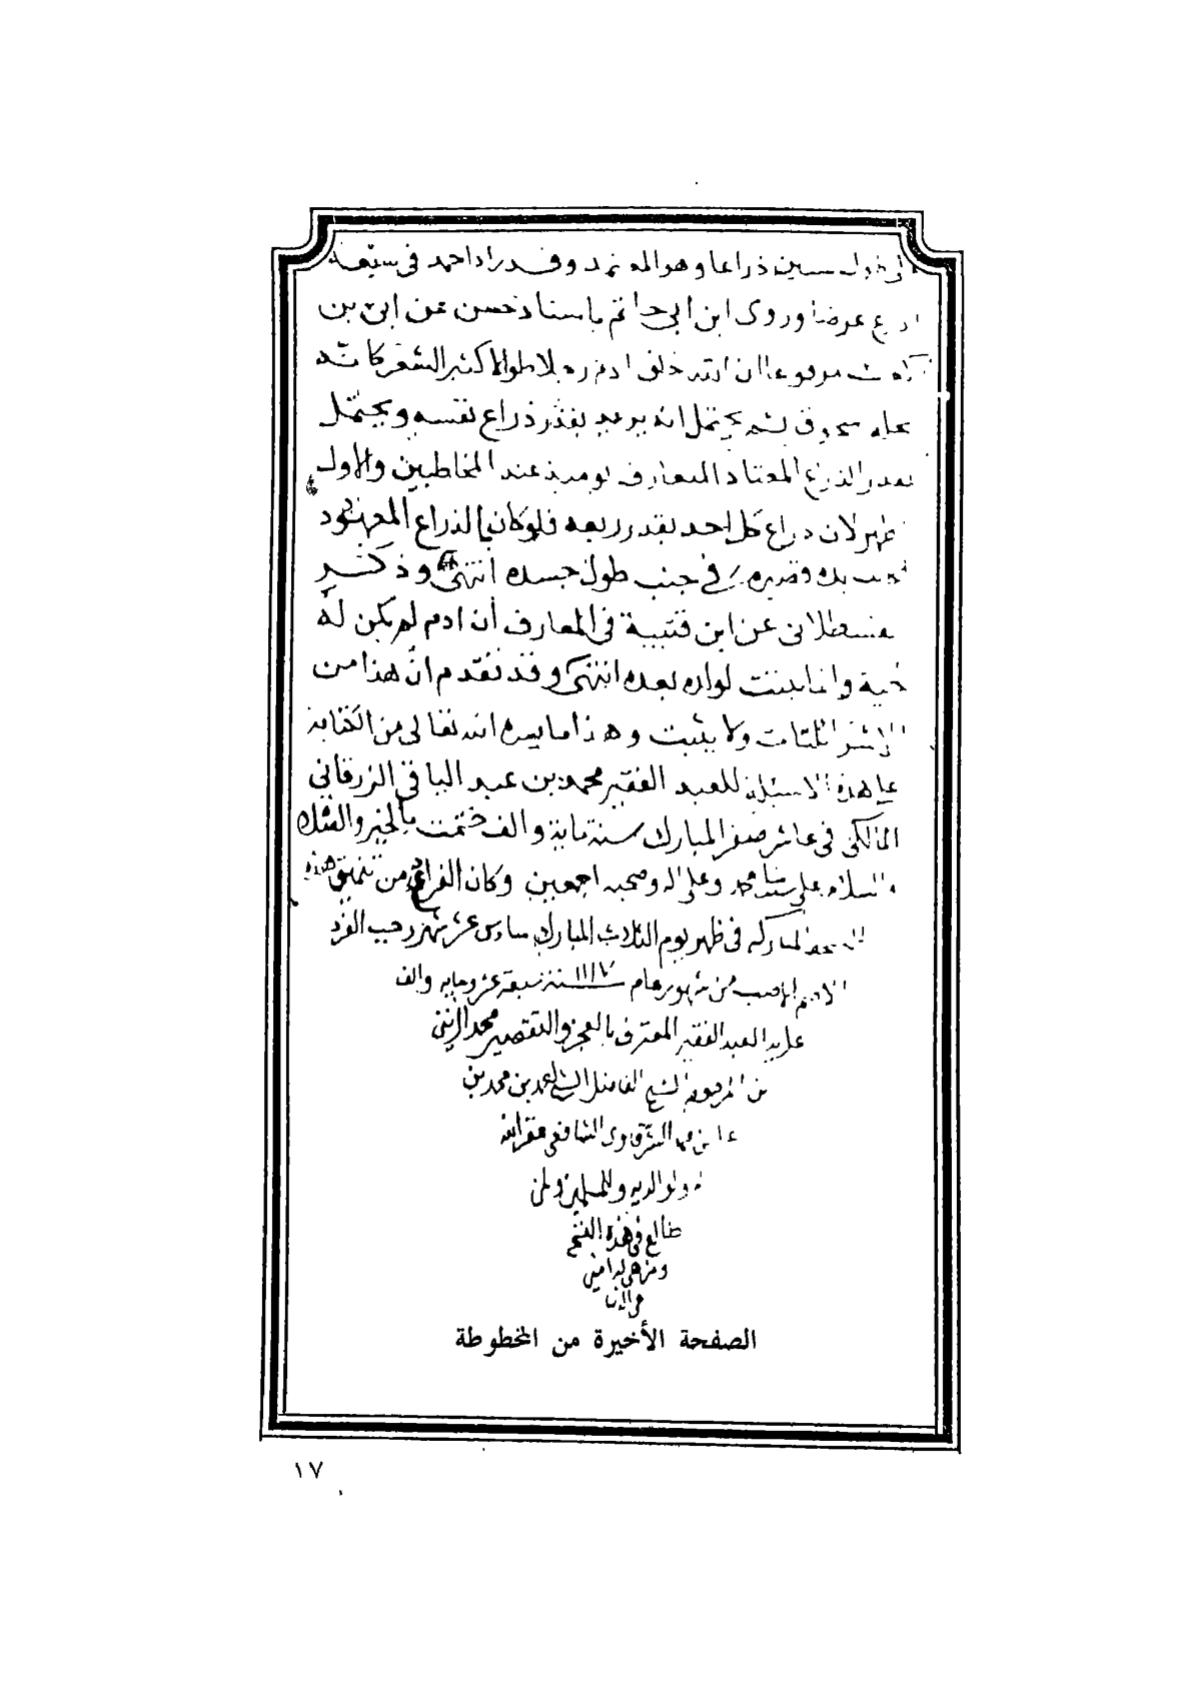 طول ستين ذراعا وهو المعتمد وقد زاد احمد في سبعة
اذرع عرضا وروى ابن ابي حاتم باسناد حسن عن ابي بن
كعب مرفوعا ان الله خلق ادم رجلا طوالا كثير الشعر كانه
نخلة سحوق يحتمل انه يريد بقدر ذراع نفسه ويحتمل
بقدر الذراع المعتاد المتعارف يوميذ عند المخاطبين والاول
اظهر لان ذراع كل احد بقدر ربعه فلو كان بالذراع المعهود
يده قصيرة في جنب طول جسده انتهى وذكر
القسطلاني عن ابن قتيبة في المعارف أن ادم لم يكن له
لحية وانما نبتت لولده بعده انتهى وقد تقدم ان هذا من
ولا يثبت وهذا ما يسره الله تعالى من الكتابة
على هذه الاسئلة للعبد الفقير محمد بن عبد الباقي الزرقاني
المالكي في عاشر صفر المبارك سنة ماية والف ختمت بالخير والصلاة
والسلام على سيدنا محمد وعلى اله وصحبه اجمعين وكان الفراغ من تنميق هذه
المباركة في ظهر يوم الثلاث المبارك سادس عشر شهر رجب الفرد
الاصم الاصب من شهور عام ١١١٧ سنة سبعة عشر وماية والف
على يد العبد الفقير المعترف بالعجز والتقصير محمد الزيني
بن المرحوم الشيخ الفاضل الشيخ احمد بن محمد بن
الشرقاوي الشافعي غفر الله
له ولوالديه وللمسلمين ولمن
طالع في هذه
الصفحة الأخيرة من المخطوطة
١٧